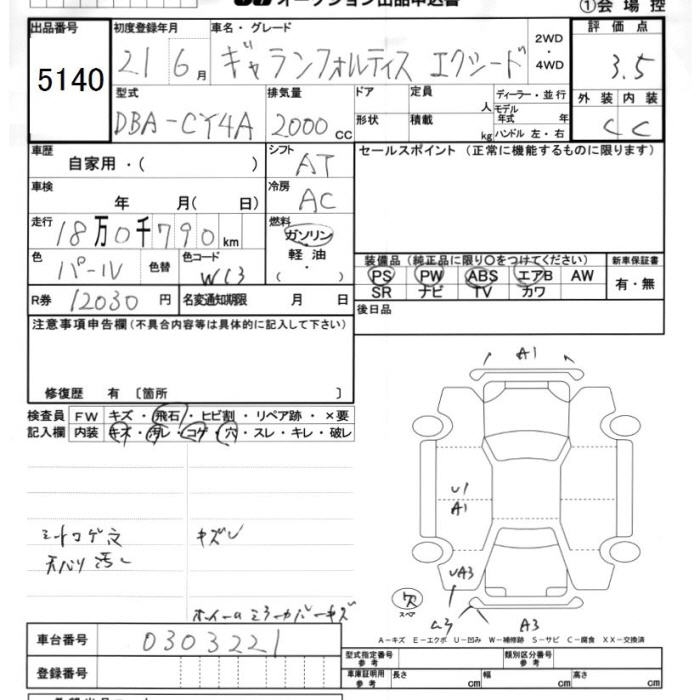 オークション出品申込書
①会場控
出品番号 初度登録年月 車名・グレード 評価点
5140 21 6月 ギャランフォルティス エクシード 2WD・4WD 3.5
型式 排気量 ドア 定員 人 ディーラー・並行 外装 内装
DBA-CY4A 2000 cc 形状 積載 kg モデル年式 年 ハンドル 左・右 C C
車歴 自家用・( ) シフト AT セールスポイント (正常に機能するものに限ります)
車検 年 月( 日) 冷房 AC
走行 18万0千790km 燃料 ガソリン 軽油・( )
色 パール 色替 色コード W13
装備品 (純正品に限り○をつけてください) 新車保証書
PS PW ABS エアB AW 有・無
SR ナビ TV カワ
R券 12030円 名変通知期限 月 日 後日品
注意事項申告欄 (不具合内容等は具体的に記入して下さい)
修復歴 有 〔箇所 〕
検査員 FW キズ・飛石・ヒビ割・リペア跡・×要
記入欄 内装 キズ・汚レ・コゲ・穴・スレ・キレ・破レ
A1
U1
A1
シートコゲ穴 キズU
天バリ汚レ
UA3
欠
スペア
ホイールミラーカバーキズ
A3 A3
A-キズ E-エクボ U-凹み W-補修跡 S-サビ C-腐食 XX-交換済
車台番号 0303221 型式指定番号 参考 類別区分番号 参考
登録番号 車庫証明用 参考 長さ cm 幅 cm 高さ cm